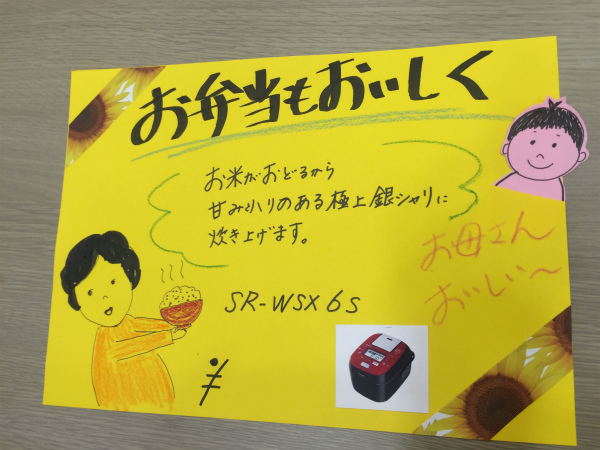 お弁当もおいしく
お米がおどるから
甘みハリのある極上銀シャリに
炊き上げます。
お母さん
おいしい〜
SR-WSX6S
¥